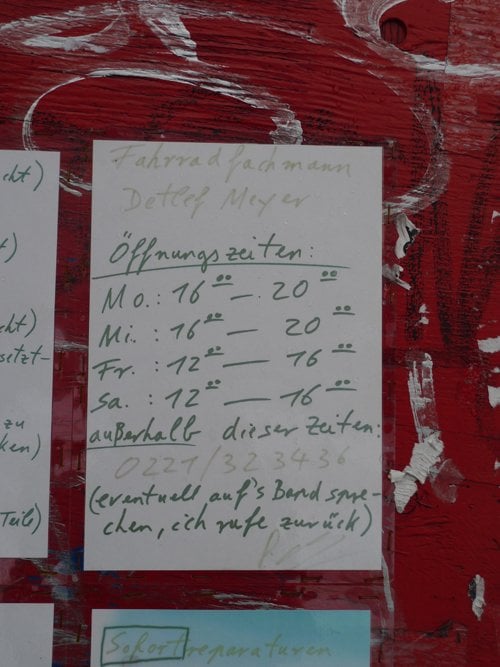 Fahrradfachmann
Detlef Meyer
Öffnungszeiten:
Mo.: 16 00 — 20 00
Mi. : 16 00 — 20 00
Fr. : 12 00 — 16 00
Sa. : 12 00 — 16 00
außerhalb dieser Zeiten:
0221/323436
(eventuell auf's Band spre-
chen, ich rufe zurück)
Sofortreparaturen
cht)
t)
cht)
setzt-
zu
ken)
Teile)